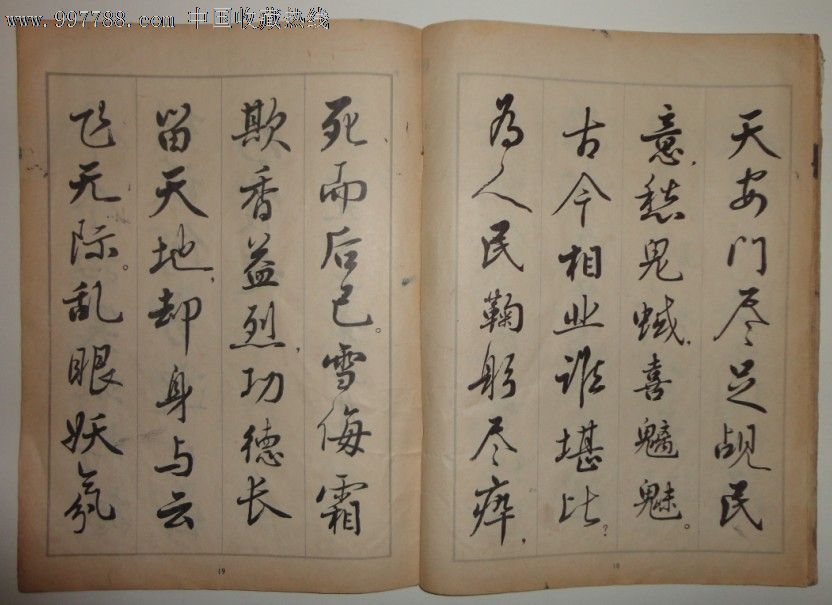 www.997788.com 中国收藏热线
天安门尽足觇民
意，愁鬼蜮，喜魑魅。
古今相业谁堪比？
为人民鞠躬尽瘁，
18
死而后已。雪侮霜
欺香益烈，功德长
留天地，却身与云
飞无际。乱眼妖氛
19